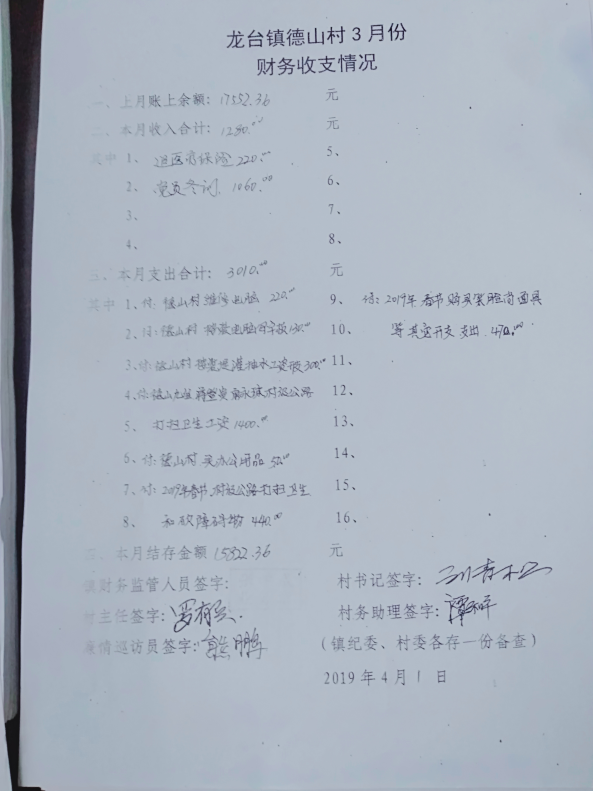 龙台镇德山村 3 月份
财务收支情况
一、上月账上余额：17552.36 元
二、本月收入合计：1280.00 元
其中 1、退医疗保险 220.00 5、
2、党员冬训 1060.00 6、
3、 7、
4、 8、
三、本月支出合计：3010.00 元
其中 1、付：德山村维修电脑 220.00 9、付：2019年春节购买 面具
2、付：德山村 电脑 130.00 10、等其它开支 支出 470.00
3、付：德山村 提灌抽水工资 300.00 11、
4、付：德山 村级公路 12、
5、打扫卫生工资 1400.00 13、
6、付：德山村买办公用品 50.00 14、
7、付：2019年春节 村级公路打扫卫生 15、
8、和砍障碍物 440.00 16、
三、本月结存金额 15822.36 元
财务监管人员签字： 村书记签字：
村主任签字： 村务助理签字：
廉情巡访员签字： 鹏
（镇纪委、村委各存一份备查）
2019 年 4 月 1 日